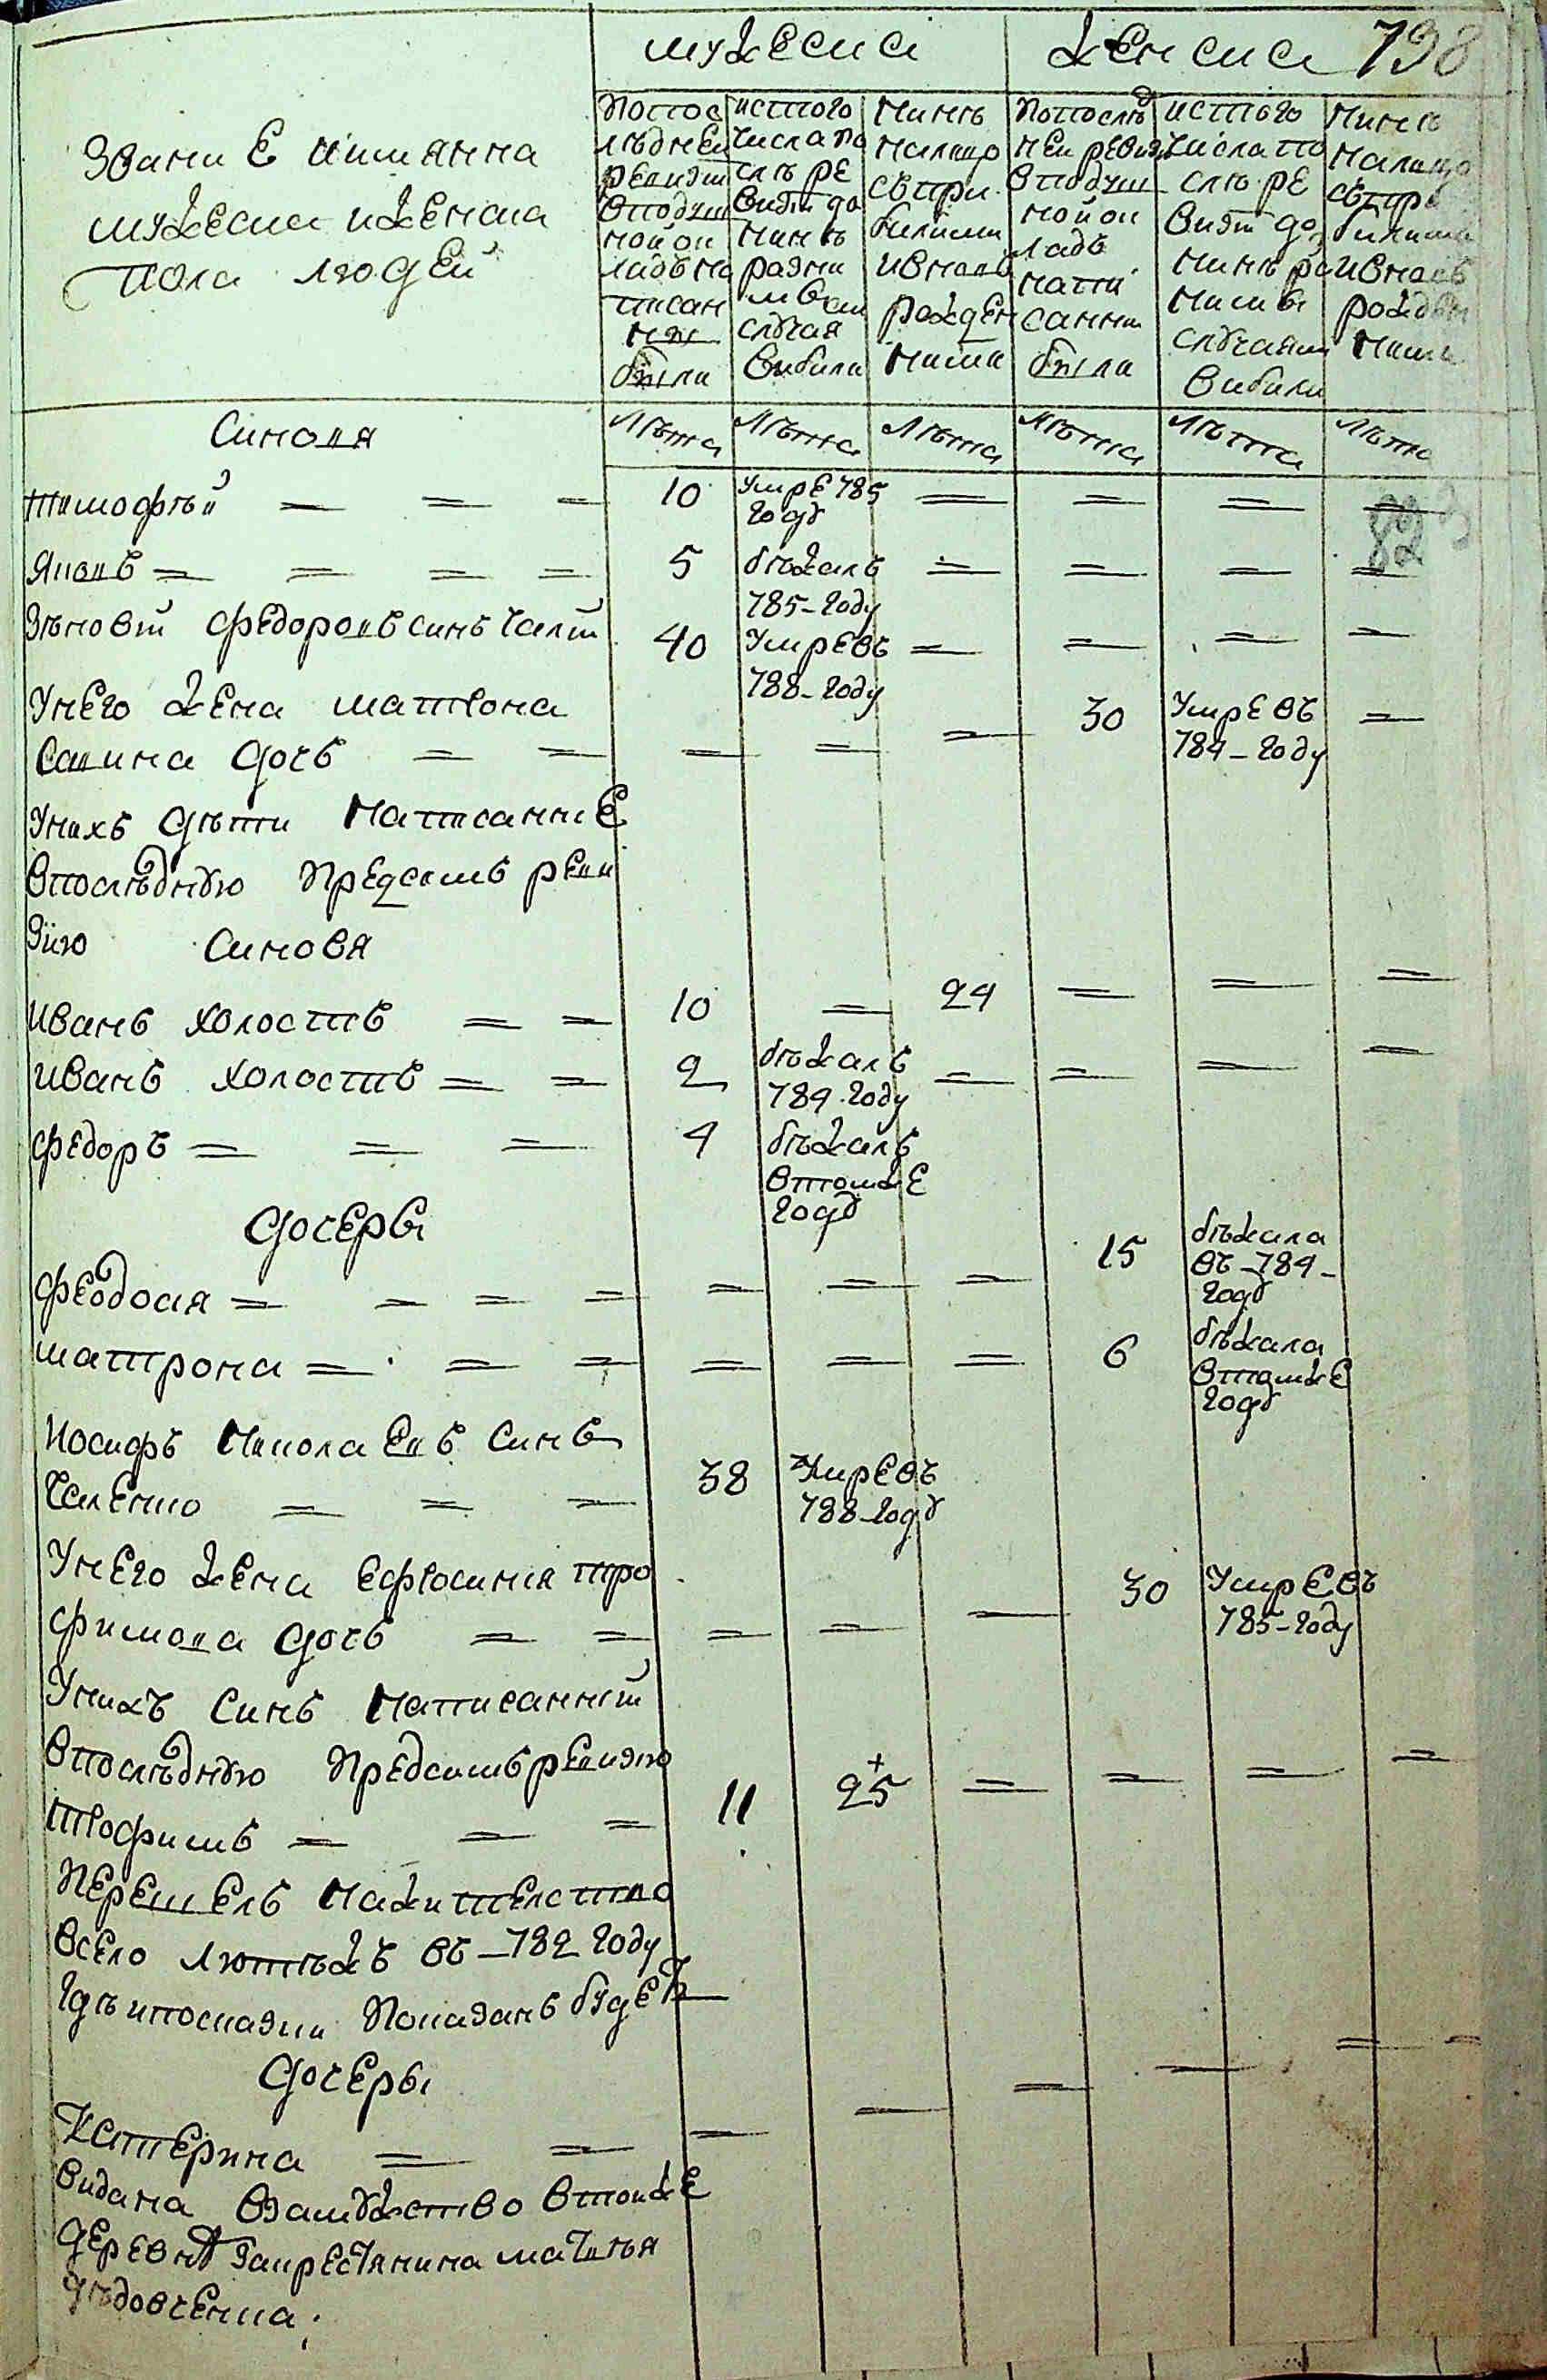 мужеска женска 798
Звание иимянна
мужеска иженска
пола людей
Попос
лѣднеи
ревизи
вподуш
ной ок
ладъ на
писан
ни
были
истого
числа по
слѣ ре
визи до
нинѣ
разни
ми
случая
вибили
Нинѣ
налицо
съпри
билими
ивновь
рожден
ними
Попослѣд
неи ревизи
вподуш
ной ок
ладъ
напи
санни
были
истого
числа по
слѣ ре
визи до
нинѣ ра
ними
случаями
вибили
Нинѣ
налицо
съпри
билими
ивновь
рожден
ними
Синовя
Лѣта Лѣта Лѣта Лѣта Лѣта Лѣта
тимофѣй — = — 10 Умре 785 году = = = =
Яковъ = = = = 5 бѣжалъ 785-году = = = =
Зѣновӣ Федоровъ синъ Чалӣ 40 Умре въ 788-году = = = =
Унего жена матрона
Савина дочъ = = = = = 30 Умре въ 784-году =
Унихъ дѣти написанние
Впослѣднюю предсимъ реви
зию Синовя
Иванъ холостъ = = 10 = 24 = = =
Иванъ холостъ = = 2 бѣжалъ 784 году = = = =
Федоръ = = = 4 бѣжалъ втомже году
Дочеры
Феодосия = = = = = = = 15 бѣжала въ-784-году
матрона = = = = = = 6 бѣжала втомже году
Иосифъ Николаевъ Синъ
Чаленко = = = 38 Умре въ 788-году
Унего жена Ефросиния тро
фимова дочъ = = = = — 30 Умре въ 785-году
Унихъ Синъ написаннӣ
Впослѣднюю предсимъ ревизию
трофимъ = = = 11 25 = = = =
Перешелъ нажителство
всело Лютѣжъ въ-782 году
гдѣ ипосказки показанъ будетъ
Дочеры
Катерина = = = — = — =
видана взамужство втойже
деревнѣ закрестянина матвѣя
дѣдовченка.